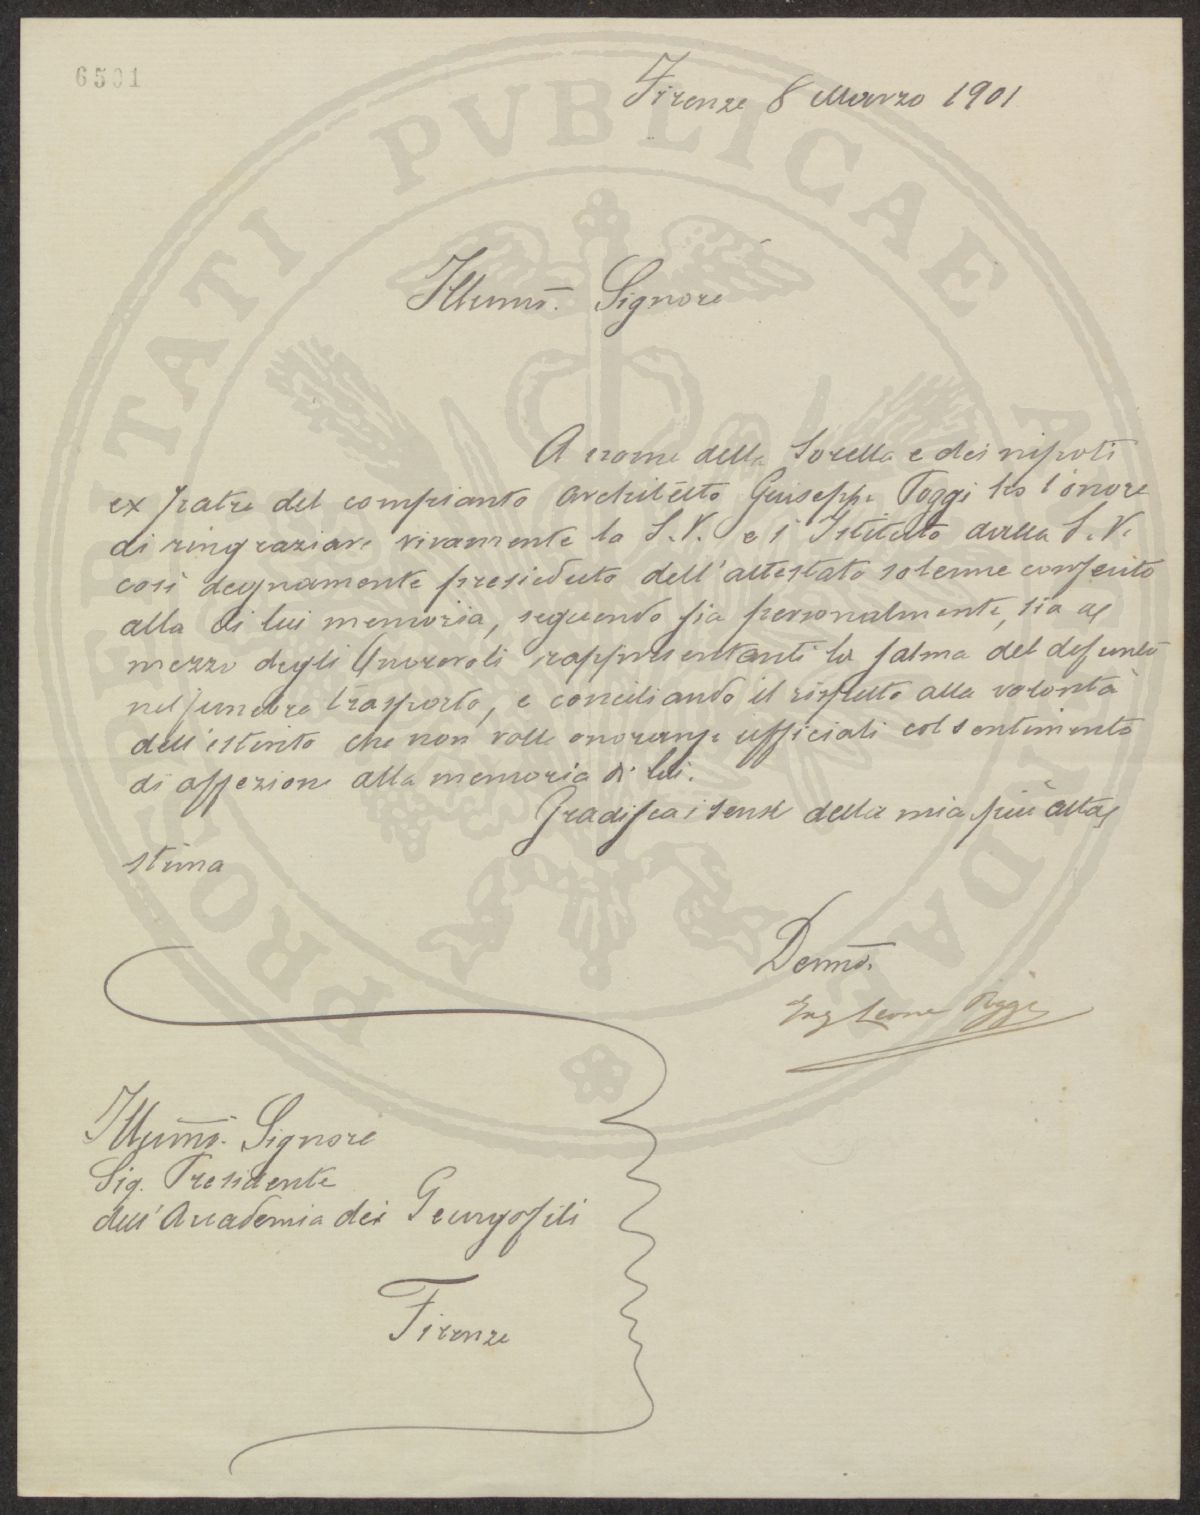 6501
Firenze 8 Marzo 1901
Illumo. Signore
A nome della Sorella e dei nipoti
ex fratre del compianto Architetto Giuseppe Poggi ho l'onore
di ringraziare vivamente la S.V. e l'Istituto dalla S.V.
così degnamente presieduto dell'attestato solenne conferito
alla di lui memoria, seguendo sia personalmente, sia a
mezzo degli Onorevoli rappresentanti la salma del defunto
nel funebre trasporto, e conciliando il rispetto alla volontà
dell'estinto che non volle onoranze ufficiali col sentimento
di affezione alla memoria di lui.
Gradisca i sensi della mia più alta
stima
Devmo.
Ing Leone Poggi
Illumo. Signore
Sig. Presidente
dell'Accademia dei Georgofili
Firenze
PROSPERITATI PVBLICAE AVGENDAE